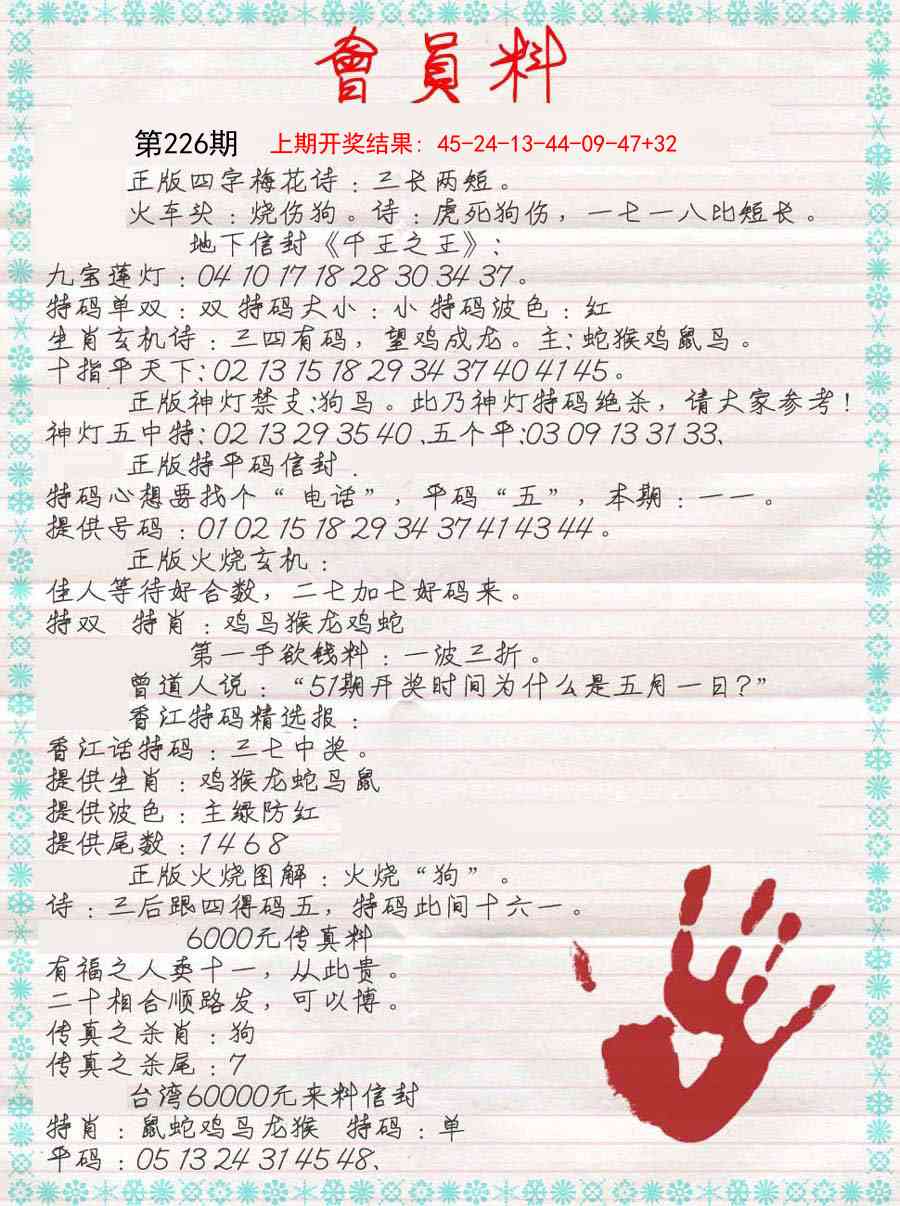 會員料
第226期 上期开奖结果: 45-24-13-44-09-47+32
正版四字梅花诗：三长两短。
火车头：烧伤狗。诗：虎死狗伤，一七一八比短长。
地下信封《千王之王》：
九宝莲灯：04 10 17 18 28 30 34 37。
特码单双：双 特码大小：小 特码波色：红
生肖玄机诗：三四有码，望鸡成龙。主：蛇猴鸡鼠马。
十指平天下：02 13 15 18 29 34 37 40 41 45。
正版神灯禁支:狗鸟。此乃神灯特码绝杀，请大家参考！
神灯五中特：02 13 29 35 40、五个平:03 09 13 31 33、
正版特平码信封．
特码心想要找个“ 电话”，平码“五”，本期：一一。
提供号码：01 02 15 18 29 34 37 41 43 44。
正版火烧玄机：
佳人等待好合数，二七加七好码来。
特双 特肖：鸡马猴龙鸡蛇
第一手欲钱料：一波三折。
曾道人说：“51期开奖时间为什么是五月一日?”
香江特码精选报：
香江话特码：三七中奖。
提供生肖：鸡猴龙蛇马鼠
提供波色：主绿防红
提供尾数：1 4 6 8
正版火烧图解：火烧“狗”。
诗：三后跟四得码五，特码此间十六一。
6000元传真料
有福之人卖十一，从此贵。
二十相合顺路发，可以博。
传真之杀肖：狗
传真之杀尾：7
台湾60000元来料信封
特肖：鼠蛇鸡马龙猴 特码：单
平码：05 13 24 31 45 48、